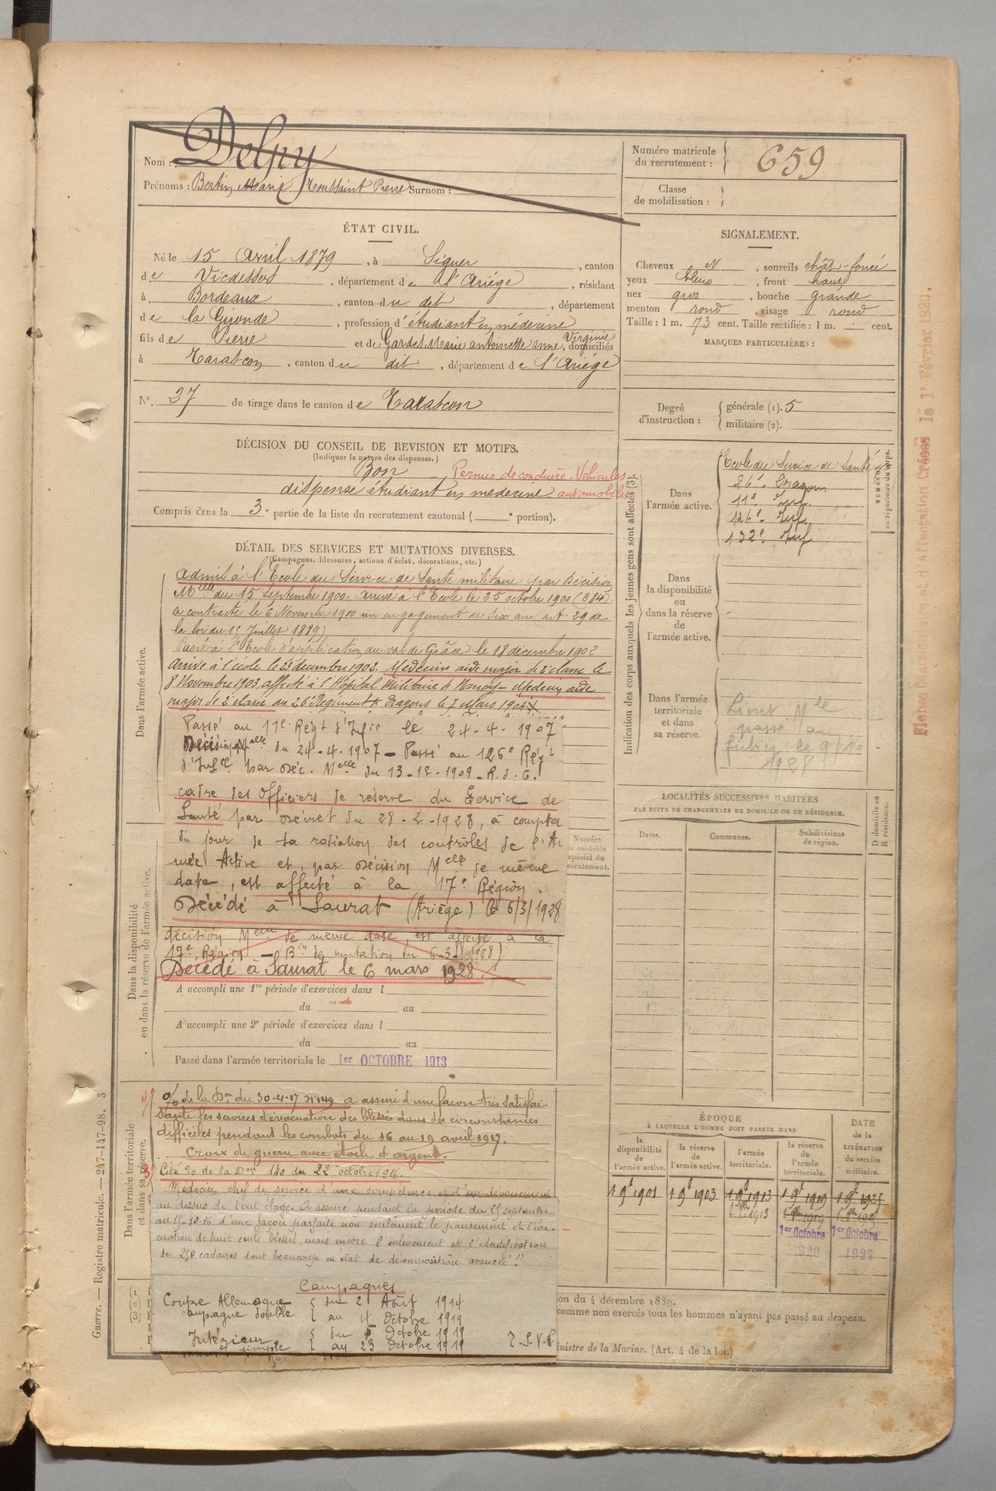 Nom : Delpy
Prénoms : Bertin Marie Toussaint Pierre Surnom :
Numéro matricule du recrutement : 659
Classe de mobilisation :
ÉTAT CIVIL.
Né le 15 Avril 1879, à Siguer, canton
de Vicdessos, département de l'Ariége, résidant
à Bordeaux, canton du dit, département
de la Gironde, profession d'étudiant en médecine
fils de Pierre et de Gardes Marie Antoinette Anne Virginie, domiciliés
à Tarascon, canton du dit, département de l'Ariége
N° 27 de tirage dans le canton de Tarascon
SIGNALEMENT.
Cheveux N, sourcils chât-foncé
yeux bleus, front haut
nez gros, bouche grande
menton rond, visage rond
Taille : 1 m. 73 cent. Taille rectifiée : 1 m. cent.
MARQUES PARTICULIÈRES :
Degré d'instruction : générale (1). 5
militaire (2).
DÉCISION DU CONSEIL DE REVISION ET MOTIFS.
(Indiquer la nature des dispenses.)
Bon
Permis de conduire Véhicules automobiles
dispensé étudiant en médecine
Compris dans la 3e partie de la liste du recrutement cantonal ( e portion).
DÉTAIL DES SERVICES ET MUTATIONS DIVERSES.
(Campagnes, blessures, actions d'éclat, décorations, etc.)
Dans l'armée active.
Admis à l'École du Service de Santé militaire par décision
Melle du 15 Septembre 1900. Arrivé à l'École le 25 octobre 1900
a contracté le 6 Novembre 1900 un engagement de six ans art. 29 de
la loi du 15 Juillet 1889)
Passé à l'École d'application du val de Grâce le 18 décembre 1902
Arrivé à l'école le 23 décembre 1902. Médecin aide major de 2e classe le
8 Novembre 1903 affecté à l'Hôpital Militaire
major de 2e classe au 26e Régiment de Dragons le 7 Mars 1904
Passé au 11e Régt d'Infie le 24-4-1907
Décision Melle du 24-4-1907 - Passé au 126e Régt
d'Infie par Déc. Melle du 13-12-1909 - R.d.C.
cadre des Officiers de réserve du Service de
Santé par Décret du 29-2-1928, à compter
du jour de sa radiation des contrôles de l'Ar
mée Active et, par Décision Melle de même
date, est affecté à la 17e Région.
Décédé à Saurat (Ariège) le 6/3/1928
Dans la disponibilité ou dans la réserve de l'armée active.
décision Melle de même date est affecté à la
17e Région - Bin de mutation du 6-3-1928)
Décédé à Saurat le 6 mars 1928
A accompli une 1re période d'exercices dans l
du au
A accompli une 2e période d'exercices dans l
du au
Passé dans l'armée territoriale le 1er OCTOBRE 1913
Dans l'armée territoriale et dans sa réserve.
% de la Don du 30-4-17 N°149 a assuré d'une façon très satisfai-
sante les services d'évacuation des blessés dans des circonstances
difficiles pendant les combats du 16 au 19 avril 1917.
Croix de guerre avec étoile d'argent.
Cité % de la Don 140 du 22 octobre 1916.
Médecin chef de service d'une compétence et d'un dévouement
au dessus de tout éloge. A assuré pendant la période du 25 septembre
au 15-10-16 d'une façon parfaite non seulement le pansement et l'éva-
cuation de huit cents blessés, mais encore l'enlèvement et l'identification
de 250 cadavres dont beaucoup en état de décomposition avancée !!
Campagnes
Contre Allemagne { du 2 Août 1914
campagne double { au 4 Octobre 1919
Intérieur { du 5 Octobre 1919
simple { au 23 Octobre 1919
T.S.V.P.
Indication des corps auxquels les jeunes gens sont affectés (3).
Dans l'armée active.
École du Service de Santé
26e Dragon
11e Inf.
126e Inf.
132e Inf
Dans la disponibilité ou dans la réserve de l'armée active.
Dans l'armée territoriale et dans sa réserve.
passé au
1928
NUMÉROS
au répertoire du corps.
LOCALITÉS SUCCESSIVES HABITÉES
PAR SUITE DE CHANGEMENTS DE DOMICILE OU DE RÉSIDENCE.
Dates. Communes. Subdivisions de région. D domicile ou R résidence.
Numéro
spécial du
recrutement.
ÉPOQUE
À LAQUELLE L'HOMME DOIT PASSER DANS
la disponibilité de l'armée active. la réserve de l'armée active. l'armée territoriale. la réserve de l'armée territoriale. DATE de la LIBÉRATION du service militaire.
1 9bre 1901 1 9bre 1903 1 9bre 1913 1 9bre 1919
1er Octobre 1er Octobre
1920 1927
on du 4 décembre 1889.
comme non exercés tous les hommes n'ayant pas passé au drapeau.
inistre de la Marine. (Art. 4 de la loi.)
Guerre. — Registre matricule. — 247-147-98. 3